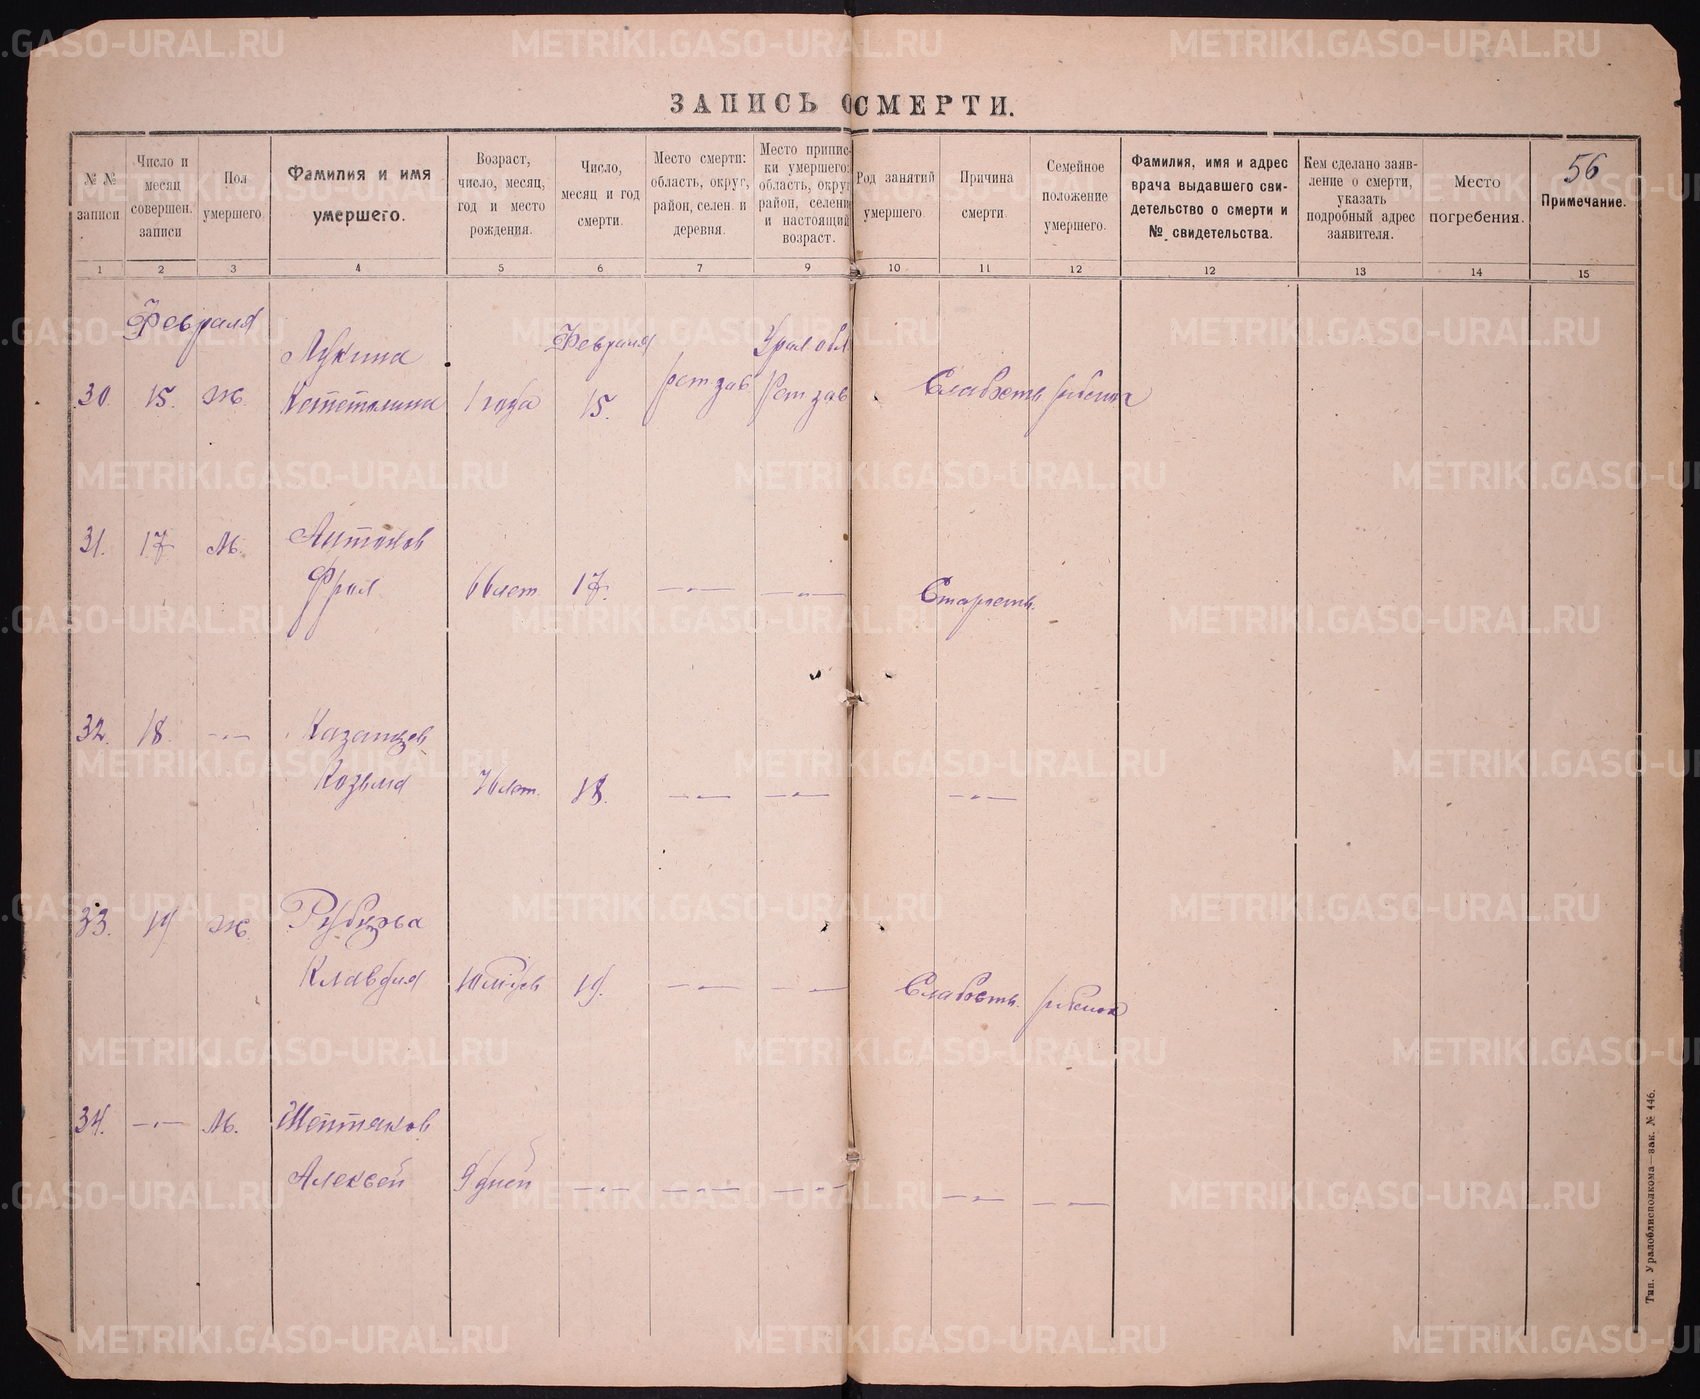 ЗАПИСЬ О СМЕРТИ.
56
№ №
записи
Число и
месяц
совершен.
записи
Пол
умершего.
Фамилия и имя
умершего.
Возраст,
число, месяц,
год и место
рождения.
Число,
месяц и год
смерти.
Место смерти:
область, округ,
район, селен. и
деревня.
Место припис-
ки умершего:
область, округ
район, селени
и настоящий
возраст.
Род занятий
умершего
Причина
смерти.
Семейное
положение
умершего.
Фамилия, имя и адрес
врача выдавшего сви-
детельство о смерти и
№ свидетельства.
Кем сделано заяв-
ление о смерти,
указать
подробный адрес
заявителя.
Место
погребения.
Примечание.
1 2 3 4 5 6 7 9 10 11 12 12 13 14 15
Февраля
Лукина Февраля Урал обл
30. 15. ж. 1 года 15. Слабость
31. 17 м. Антонов
Фрол 66 лет 17. —„— —„— Старость.
32. 18. —„— Казанцев
Козьма 76 лет. 18. —„— —„— —„—
33. 19 ж. Рубцова
Клавдия 19. —„— —„— Слабость.
34. —„— м. Шептяков
Алексей 9 дней —„— —„— —„— —„— —„—
Тип. Уралоблисполкома—зак. № 446.
METRIKI.GASO-URAL.RU